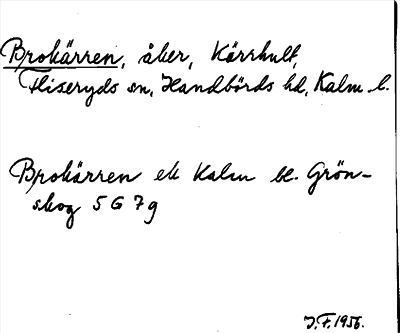 Brokärren, åker, Kärrhult,
Fliseryds sn, Handbörds hd, Kalm. l.
Brokärren ek Kalm bl. Grön-
skog 5 G 7 g
J.F. 1956.